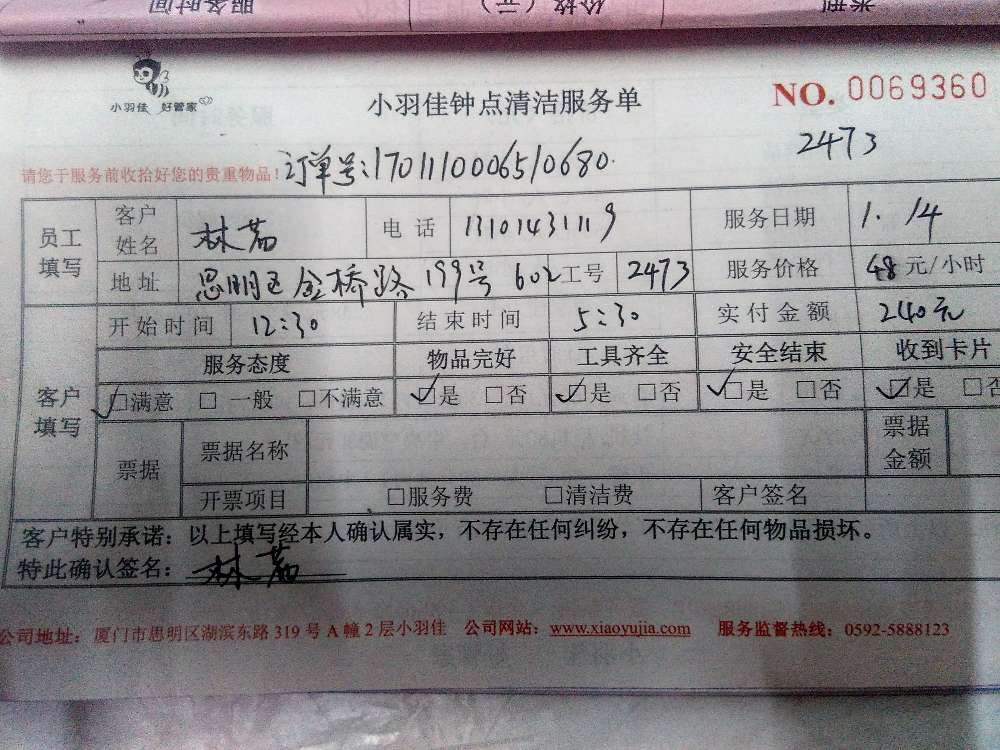 服务时间 价格(元) 类型
小羽佳 好管家
小羽佳钟点清洁服务单
NO. 0069360
2473
请您于服务前收拾好您的贵重物品! 订单号:1701110006510680.
员工填写 客户姓名 林茹 电话 13101431119 服务日期 1.14
地址 思明区金桥路199号602 工号 2473 服务价格 48元/小时
客户填写 开始时间 12:30 结束时间 5:30 实付金额 240元
服务态度 物品完好 工具齐全 安全结束 收到卡片
☑满意 □一般 □不满意 ☑是 □否 ☑是 □否 ☑是 □否 ☑是 □否
票据 票据名称 票据金额
开票项目 □服务费 □清洁费 客户签名
客户特别承诺:以上填写经本人确认属实,不存在任何纠纷,不存在任何物品损坏。
特此确认签名:林茹
公司地址:厦门市思明区湖滨东路319号A幢2层小羽佳 公司网站:www.xiaoyujia.com 服务监督热线:0592-5888123